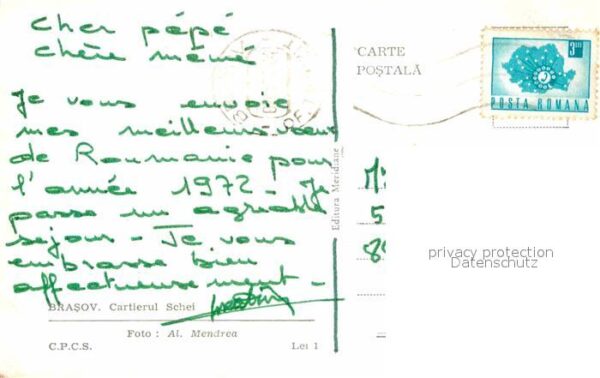 Cher pépé
Chère mémé
Je vous envoie
mes meilleurs vœux
de Roumanie pour
l'année 1972 - Je
passe un agréable
sejour - Je vous
embrasse bien
affectueusement -
BRAȘOV. Cartierul Schei
Foto : Al. Mendrea
C.P.C.S. Lei 1
Editura Meridiane
CARTE
POȘTALĂ
POSTA ROMANA
5
privacy protection
Datenschutz